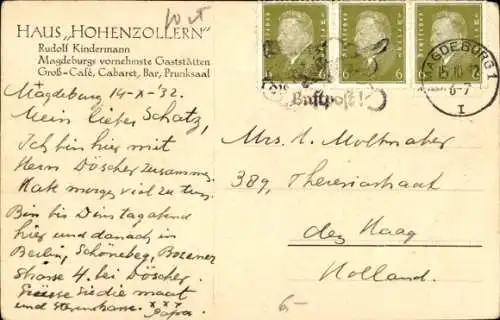 HAUS „HOHENZOLLERN"
Rudolf Kindermann
Magdeburgs vornehmste Gaststätten
Groß-Café, Cabaret, Bar, Prunksaal
Magdeburg 14-X-'32.
Mein lieber Schatz,
Ich bin hier mit
Herrn Döscher zusammen.
Hake morges viel zu tun.
Bin bis Dinstagabend
hier und danach in
Berlin, Schöneberg, Bozener
Strasse 4. bei Döscher.
Grüsse Sie die maat
und x x x
Papa.
6 6 6
MAGDEBURG 1
15.10.32
6-7
I
Luftpost!
Mrs. H. Moltmaker
389, Theresiastraat
den Haag
Holland.
6-